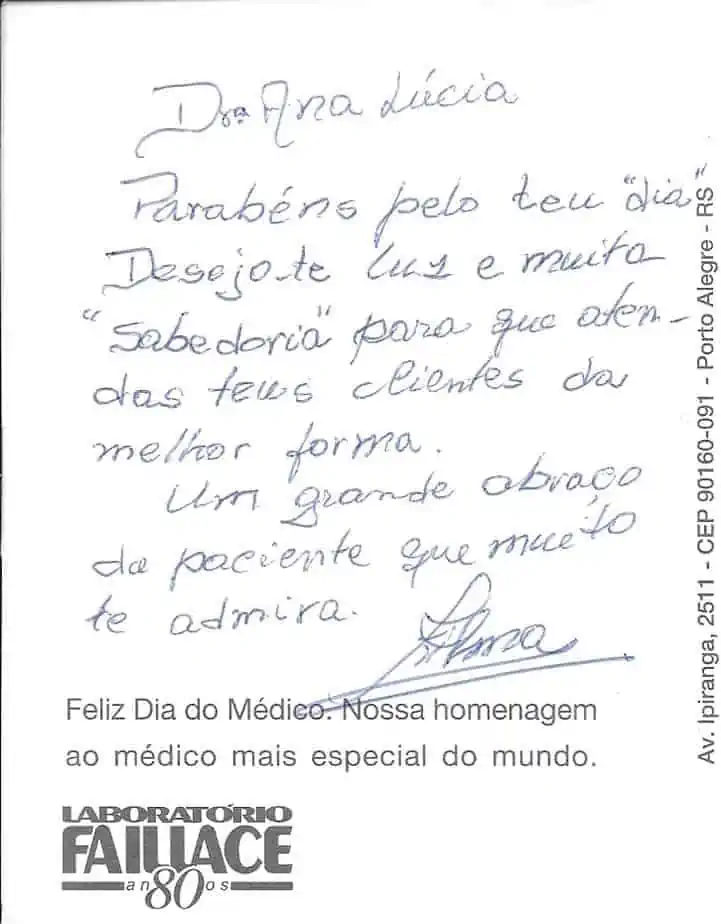 Drª Ana Lúcia
Parabéns pelo teu "dia"
Desejo-te luz e muita
"Sabedoria" para que aten-
das teus clientes da
melhor forma.
Um grande abraço
da paciente que muito
te admira.
Feliz Dia do Médico. Nossa homenagem
ao médico mais especial do mundo.
LABORATÓRIO
FAILLACE
80 anos
Av. Ipiranga, 2511 - CEP 90160-091 - Porto Alegre - RS